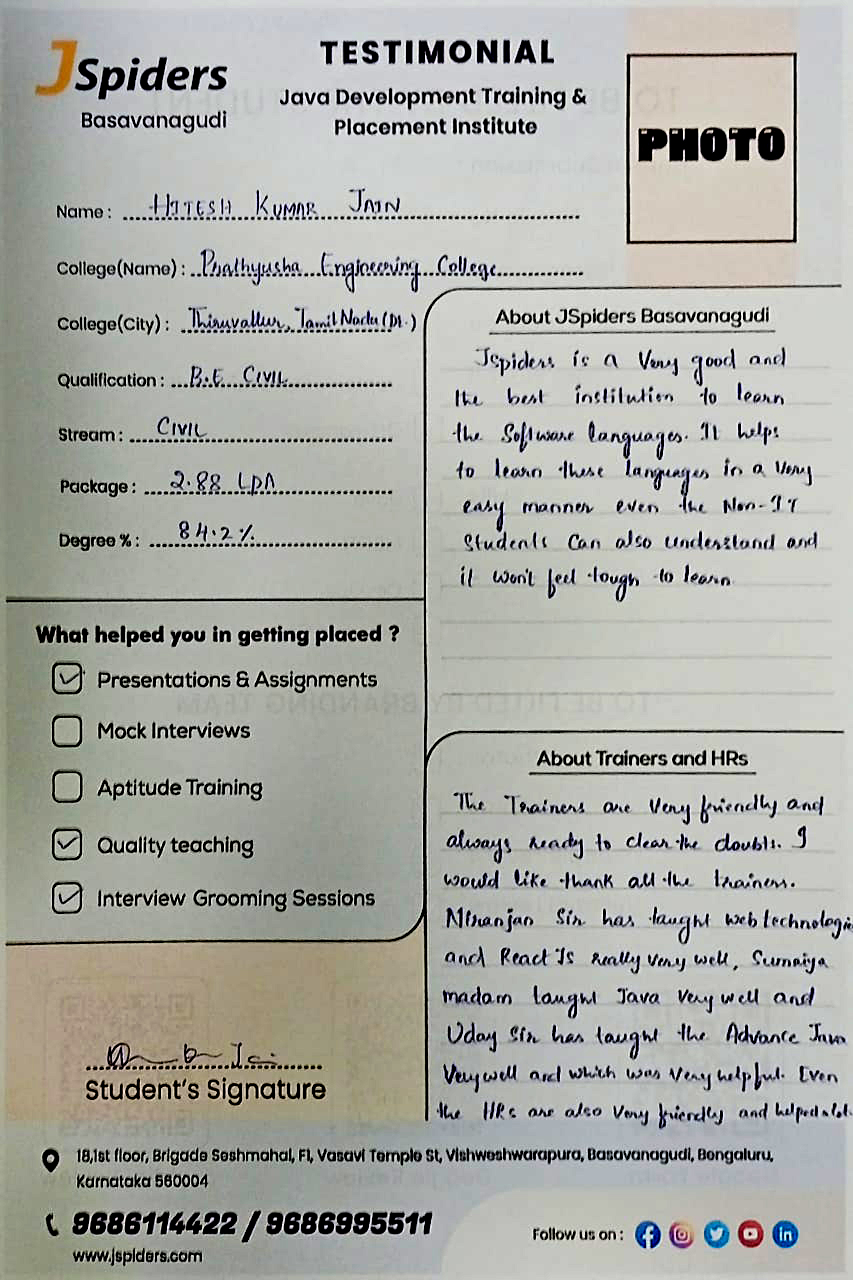 JSpiders
Basavanagudi
TESTIMONIAL
Java Development Training &
Placement Institute
PHOTO
Name : HITESH KUMAR JAIN
College(Name) : Prathyusha Engineering College
College(City) : Thiruvallur, Tamil Nadu (Dt.)
Qualification : B.E CIVIL
Stream : CIVIL
Package : 2.88 LPA
Degree % : 84.2%
What helped you in getting placed ?
Presentations & Assignments
Mock Interviews
Aptitude Training
Quality teaching
Interview Grooming Sessions
Student's Signature
About JSpiders Basavanagudi
Jspiders is a Very good and
the best institution to learn
the Software languages. It helps
to learn these languages in a Very
easy manner even the Non-IT
Students Can also understand and
it won't feel tough to learn
About Trainers and HRs
The Trainers are Very friendly and
always ready to clear the doubts. I
would like thank all the trainers.
Niranjan Sir has taught web technologie
and React Js really very well, Sumaiya
madam taught Java Very well and
Uday Sir has taught the Advance Java
Very well and which was Very helpful. Even
the HRs are also Very friendly and helped a lot.
18,1st floor, Brigade Seshmahal, Fl, Vasavi Temple St, Vishweshwarapura, Basavanagudi, Bengaluru,
Karnataka 560004
9686114422 / 9686995511
www.jspiders.com
Follow us on :